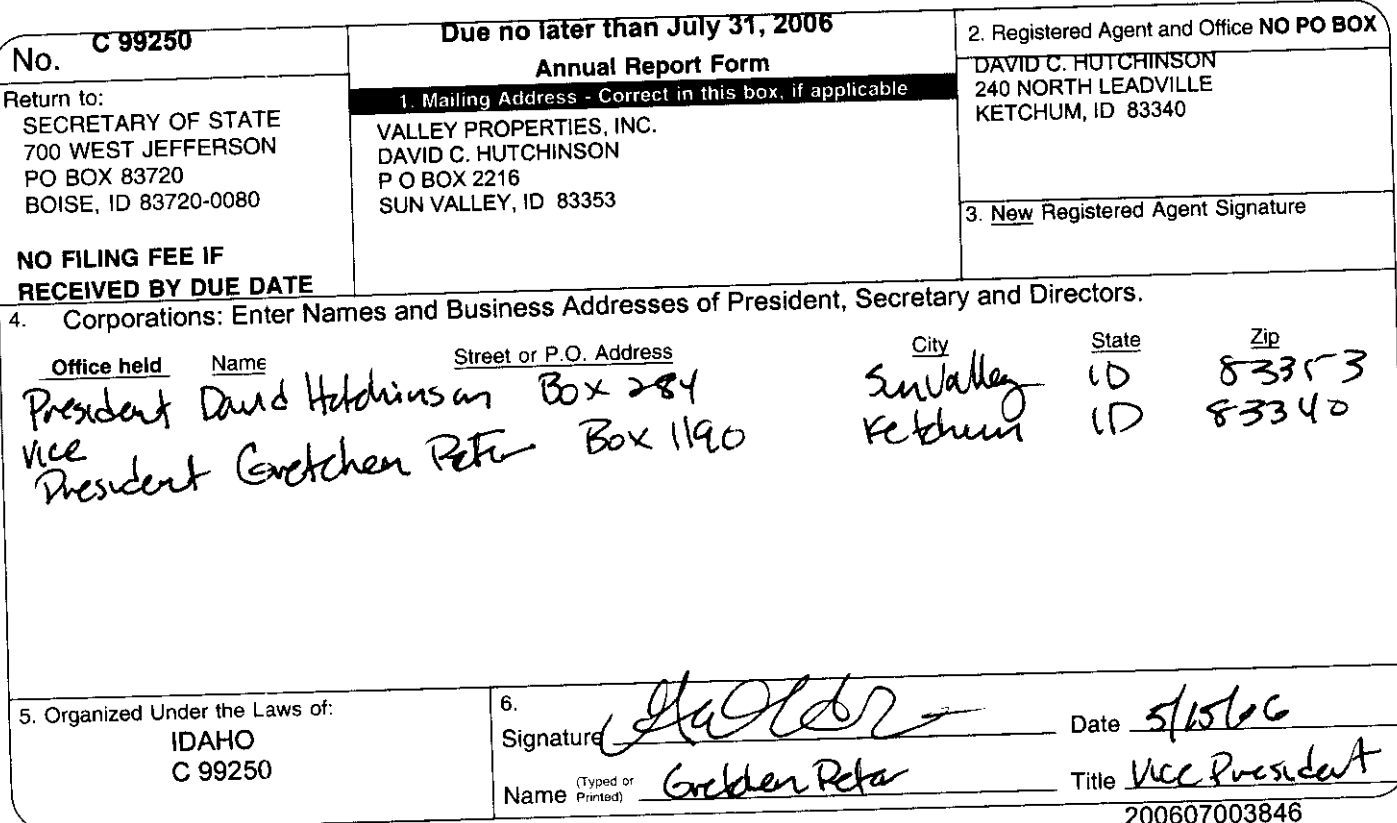 No. C 99250
Return to:
SECRETARY OF STATE
700 WEST JEFFERSON
PO BOX 83720
BOISE, ID 83720-0080
NO FILING FEE IF
RECEIVED BY DUE DATE
Due no later than July 31, 2006
Annual Report Form
1. Mailing Address - Correct in this box, if applicable
VALLEY PROPERTIES, INC.
DAVID C. HUTCHINSON
P O BOX 2216
SUN VALLEY, ID 83353
2. Registered Agent and Office NO PO BOX
DAVID C. HUTCHINSON
240 NORTH LEADVILLE
KETCHUM, ID 83340
3. New Registered Agent Signature
4. Corporations: Enter Names and Business Addresses of President, Secretary and Directors.
Office held Name Street or P.O. Address City State Zip
President David Hutchinson Box 284 Sun Valley ID 83353
Vice
President Gretchen Box 1190 Ketchum ID 83340
5. Organized Under the Laws of:
IDAHO
C 99250
6.
Signature Date 5/15/06
Name (Typed or Printed) Gretchen Title Vice President
200607003846